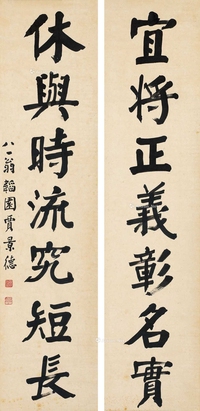 宜将正義彰名實
休與時流究短長
八一翁韜園賈景德